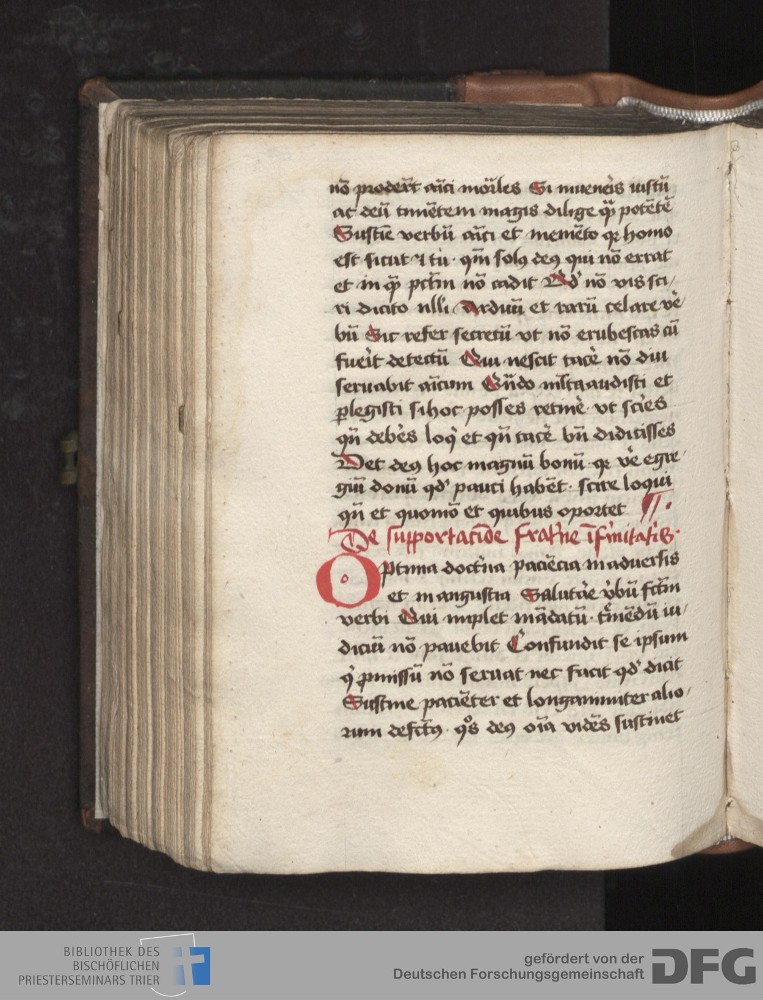 nō proder̄t aīci mōrles Si inuenēis iustū
ac deū timētem magis dilige q̄ꝫ potētē
Sustīe verbū aīci et memēto qꝫ homo
est sicut ⁊ tū · qm̄ solꝰ deꝰ qui nō errat
et in q̄ꝫ pctm̄ nō cadit Qd̓ nō vis sci/
ri dicito nlli Arduū et rarū celare vē
bū Sic refer secretū vt nō erubescas cū
fuēit detectū Qui nescit tacē nō diu
seruabit aīcum Qn̄do ml̄ta audisti et
ꝑlegisti si hoc posses retinē · vt scīes
qn̄ debēs loqͥ et qn̄ tacē bn̄ didicisses
Det deꝰ hoc magnū bonū · qꝫ vē egre/
giū donū qd̓ pauci habēt · scire loqui
qn̄ et quomō et quibus oportet
De supportacīōe frat̓ne īfirmitatis·
Optima doctͥna paciēcia in aduersis
et in angustia Salutāe v̓bū fctm̄
verbi Qui implet mādatū · tīmēdū iu/
diciū nō pauebit Confundit se ipsum
qͥ ꝓmissū nō seruat nec facit qd̓ dicit
Sustine paciēter et longanimiter alio/
rum defctꝰ · qᵒs deꝰ oīa vidēs sustinet
BIBLIOTHEK DES
BISCHÖFLICHEN
PRIESTERSEMINARS TRIER
gefördert von der
Deutschen Forschungsgemeinschaft
DFG